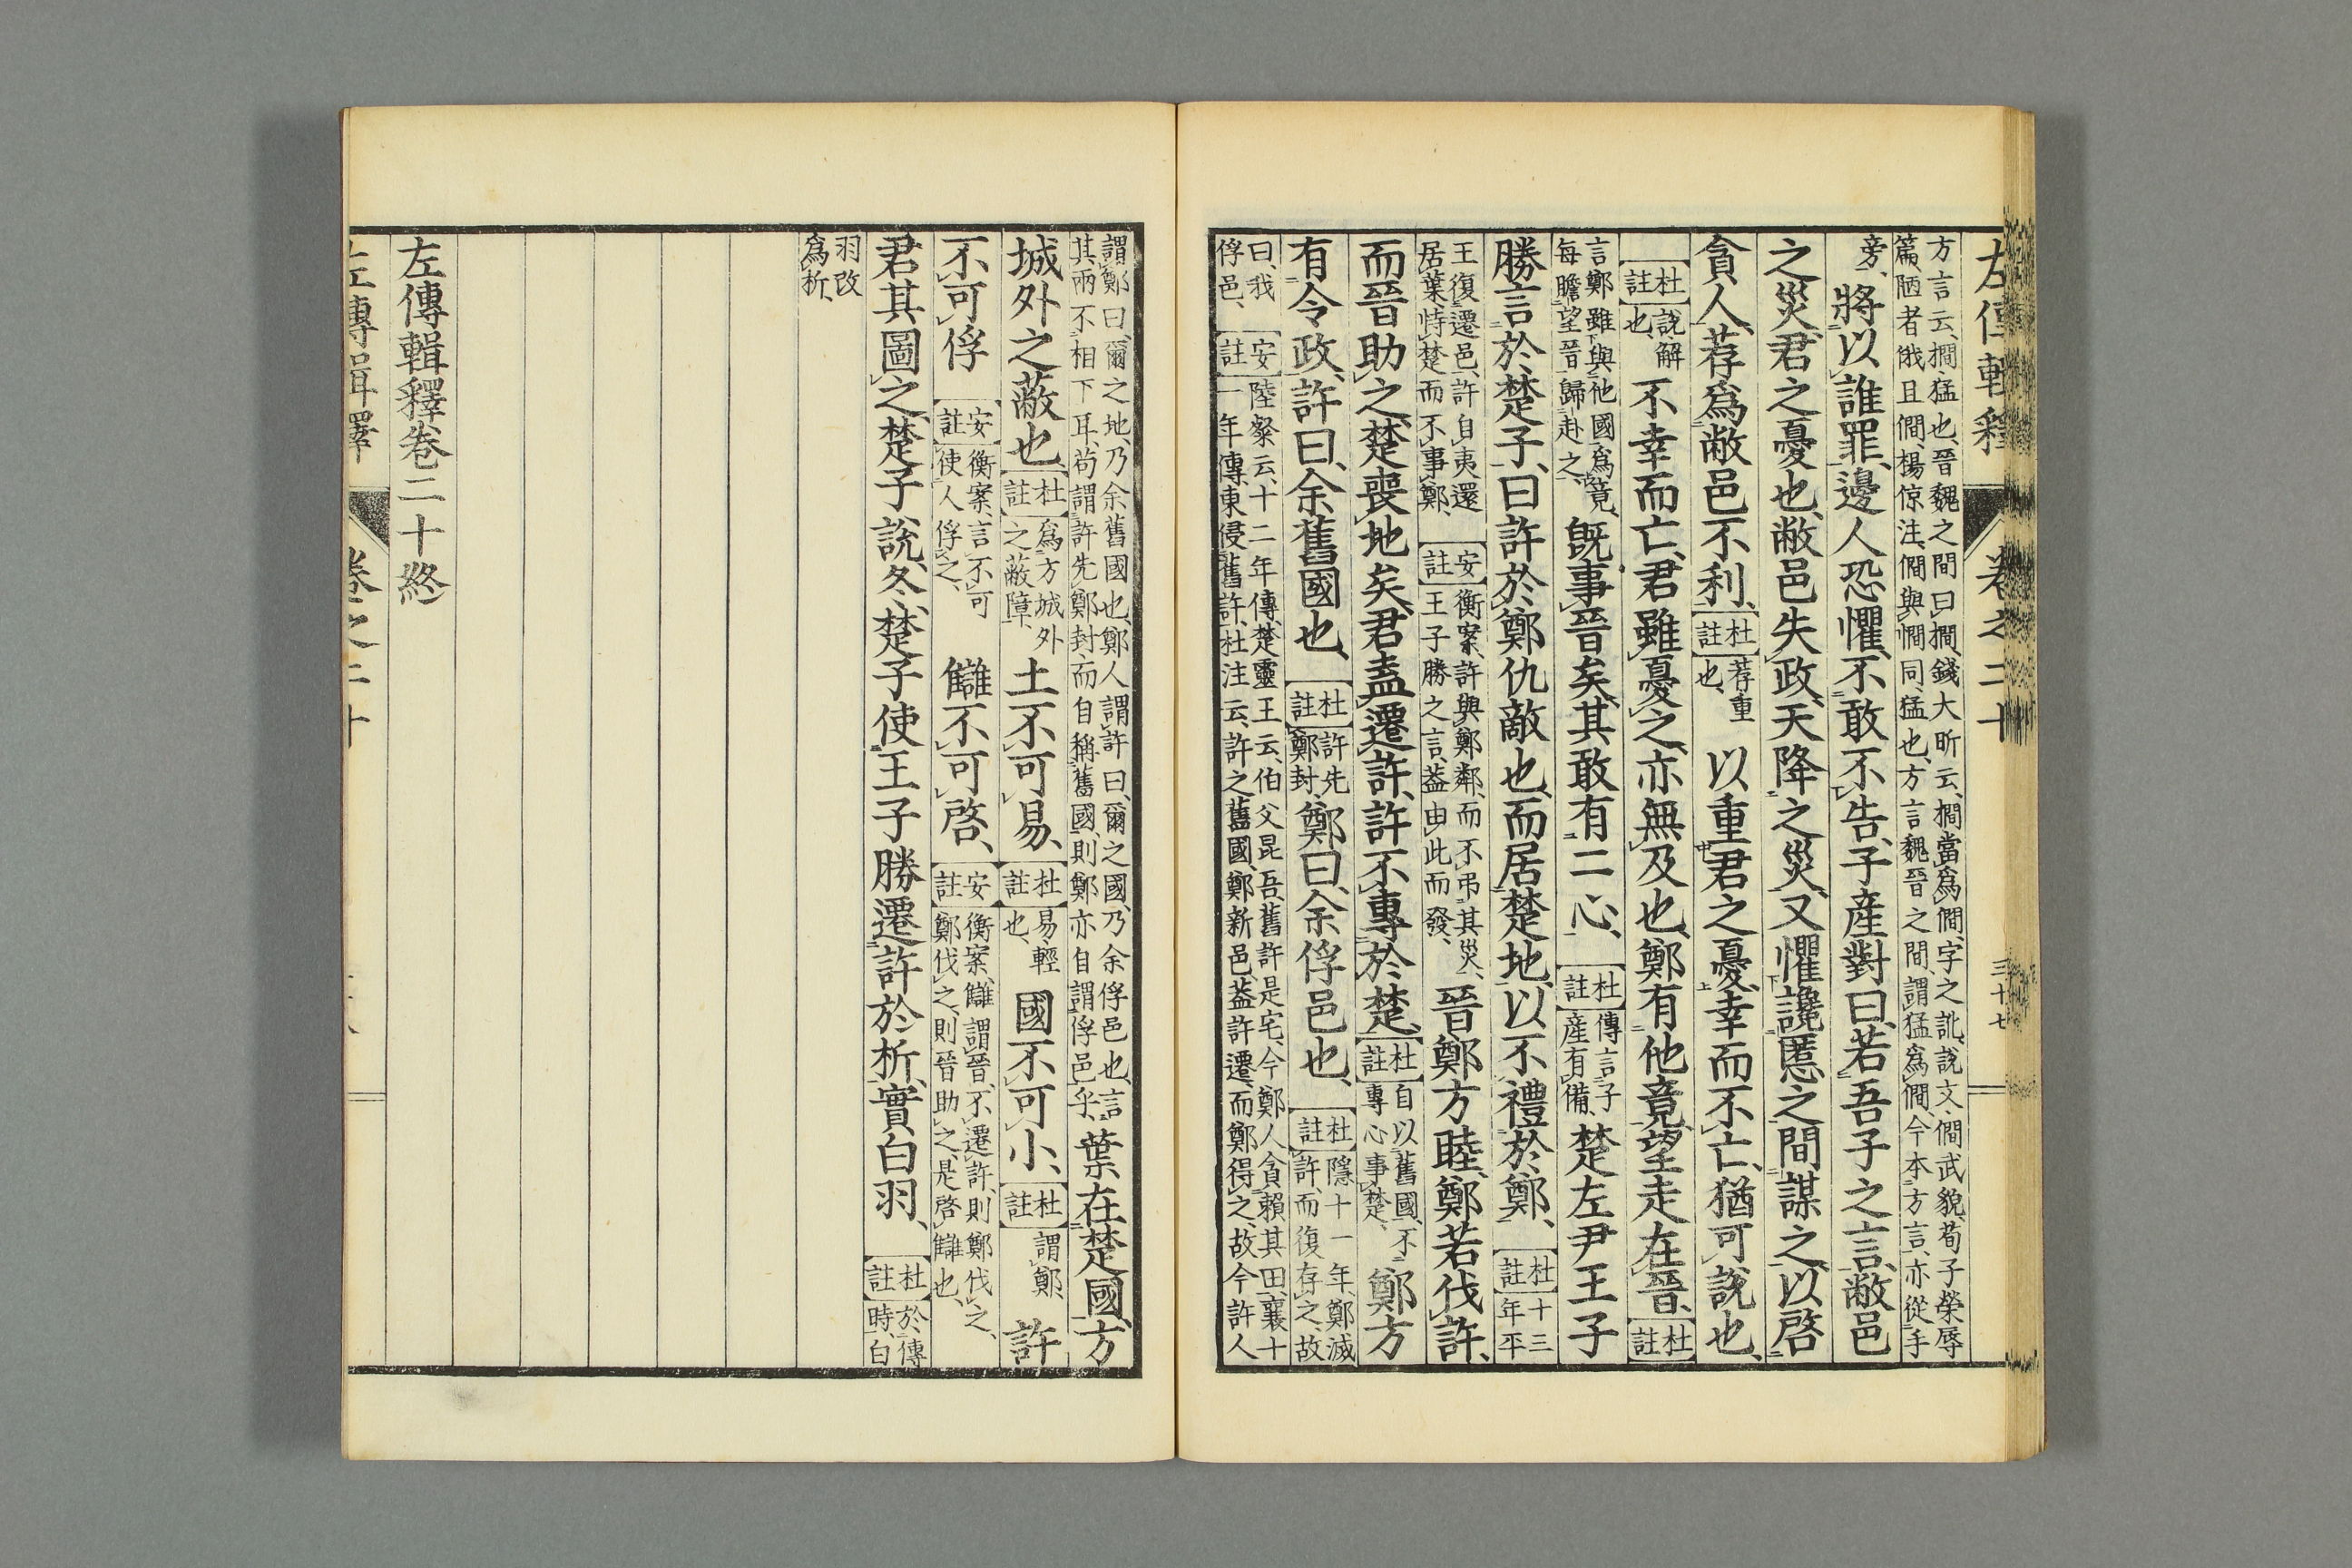 左傳輯釋 卷之二十 三十七
方言云、撊、猛也、晉魏之間曰撊、錢大昕云、撊當爲僩、字之訛、說文、僩武貌、荀子榮辱
篇、陋者俄且僩、楊倞注、僩與憪同、猛也、方言魏晉之間、謂猛爲僩、今本方言、亦從手
旁、將以誰罪、邊人恐懼、不敢不告、子產對曰、若吾子之言、敝邑
之災、君之憂也、敝邑失政、天降之災、又懼讒慝之間謀之、以啓
貪人、荐爲敝邑不利、杜註荐重也、以重君之憂、幸而不亡、猶可說也、
杜註說解也、不幸而亡、君雖憂之、亦無及也、鄭有他竟、望走在晉、杜註
言鄭雖與他國爲竟、每瞻望晉歸赴之、既事晉矣、其敢有二心、杜註傳言子產有備、楚左尹王子
勝言於楚子、曰許於鄭仇敵也、而居楚地、以不禮於鄭、杜註十三年平
王復遷邑、許自夷還居葉、恃楚而不事鄭、安註衡案、許與鄭鄰、而不弔其災、王子勝之言、蓋由此而發、晉鄭方睦、鄭若伐許、
而晉助之、楚喪地矣、君盍遷許、許不專於楚、杜註自以舊國、不專心事楚、鄭方
有令政、許曰、余舊國也、杜註許先鄭封、鄭曰、余俘邑也、杜註隱十一年、鄭滅許、而復存之、故
曰、我俘邑、安註陸粲云、十二年傳、楚靈王云、伯父昆吾、舊許是宅、今鄭人貪賴其田、襄十一年傳、東侵舊許、杜注云、許之舊國、鄭新邑、蓋許遷、而鄭得之、故今許人
謂鄭曰、爾之地、乃余舊國也、鄭人謂許曰、爾之國、乃余俘邑也、言其兩不相下耳、茍謂許先鄭封、而自稱舊國、則鄭亦自謂俘邑乎、葉在楚國、方
城外之蔽也、杜註爲方城外之蔽障、土不可易、杜註易、輕也、國不可小、杜註謂鄭、許
不可俘、安註衡案、言不可使人俘之、讎不可啓、安註衡案、讎謂晉、不遷許、則鄭伐之、鄭伐之、則晉助之、是啓讎也、
君其圖之、楚子說、冬、楚子使王子勝遷許於析、實白羽、杜註於傳時、白
羽改爲析、
左傳輯釋卷二十終
左傳輯釋 卷之二十